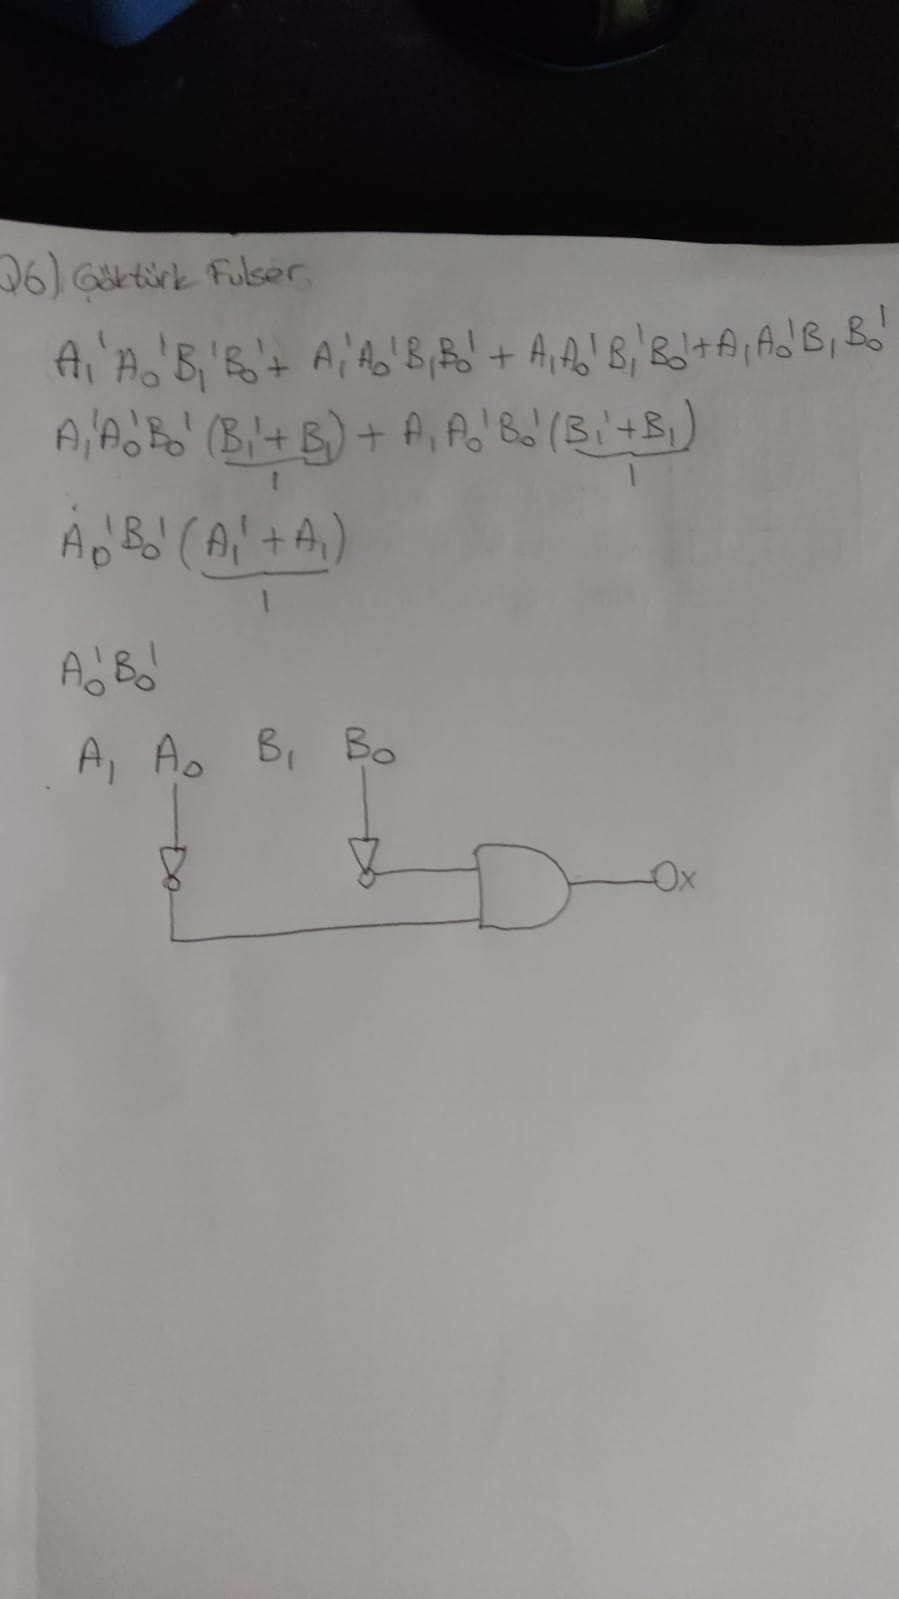 Q6) Göktürk Fulser
A₁'A₀'B₁'B₀' + A₁'A₀'B₁B₀' + A₁A₀'B₁'B₀' + A₁A₀'B₁B₀'
A₁'A₀'B₀'(B₁'+B₁) + A₁A₀'B₀'(B₁'+B₁)
1 1
A₀'B₀'(A₁'+A₁)
1
A₀'B₀'
A₁ A₀ B₁ B₀
x